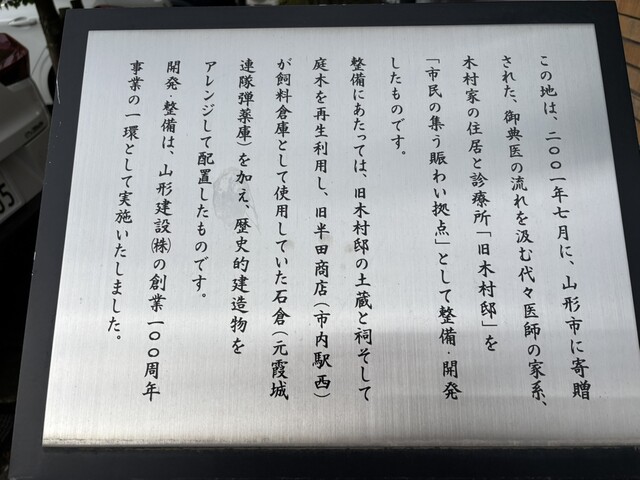 この地は、二〇〇一年七月に、山形市に寄贈
された、御典医の流れを汲む代々医師の家系、
木村家の住居と診療所「旧木村邸」を
「市民の集う賑わい拠点」として整備・開発
したものです。
整備にあたっては、旧木村邸の土蔵と祠そして
庭木を再生利用し、旧半田商店(市内駅西)
が飼料倉庫として使用していた石倉(元霞城
連隊弾薬庫)を加え、歴史的建造物を
アレンジして配置したものです。
開発・整備は、山形建設㈱の創業一〇〇周年
事業の一環として実施いたしました。